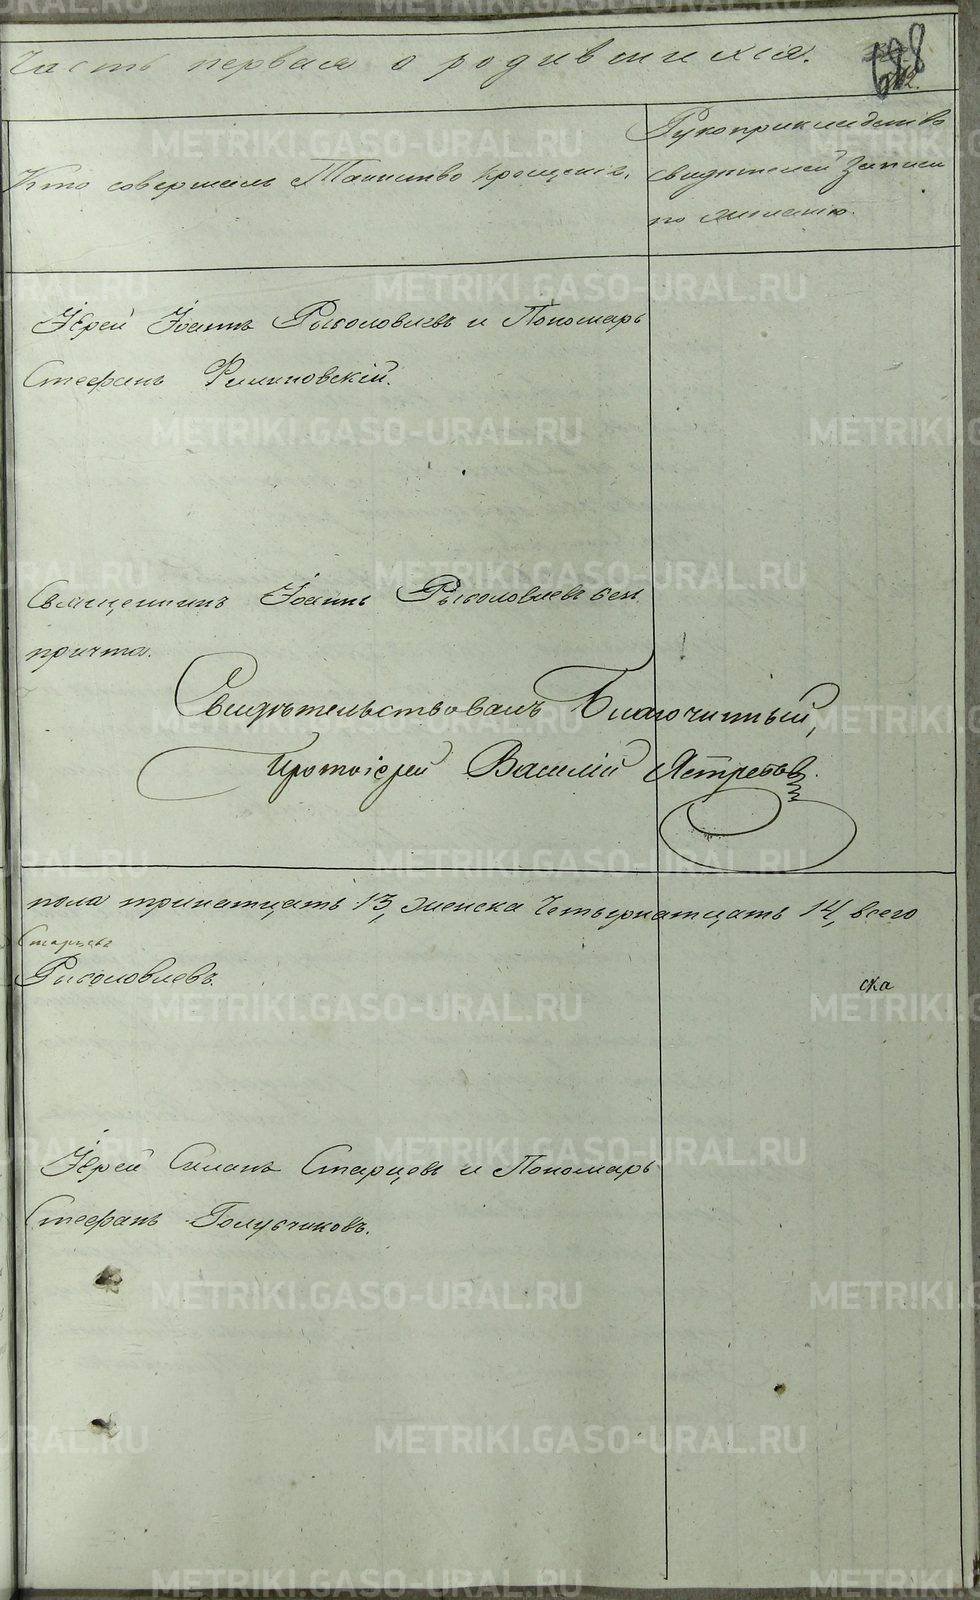 Часть первая о родившихся.
698
Кто совершалъ Таинство крещенія.
Рукоприкладство
свидѣтелей записи
по желанію.
Іерей Іоаннъ Рыболовлевъ и Пономарь
Стефанъ Филиповскій.
Священникъ Іоаннъ Рыболовлевъ безъ
причта.
Свидѣтельствовалъ Благочинный,
Протоіерей Василій Ястребовъ.
пола тринатцать 13, женска Четырнатцать 14, всего
Старцевъ
Рыболовлевъ.
ска
Іерей Симонъ Старцевъ и Пономарь
Стефанъ Голубчиковъ.
METRIKI.GASO-URAL.RU